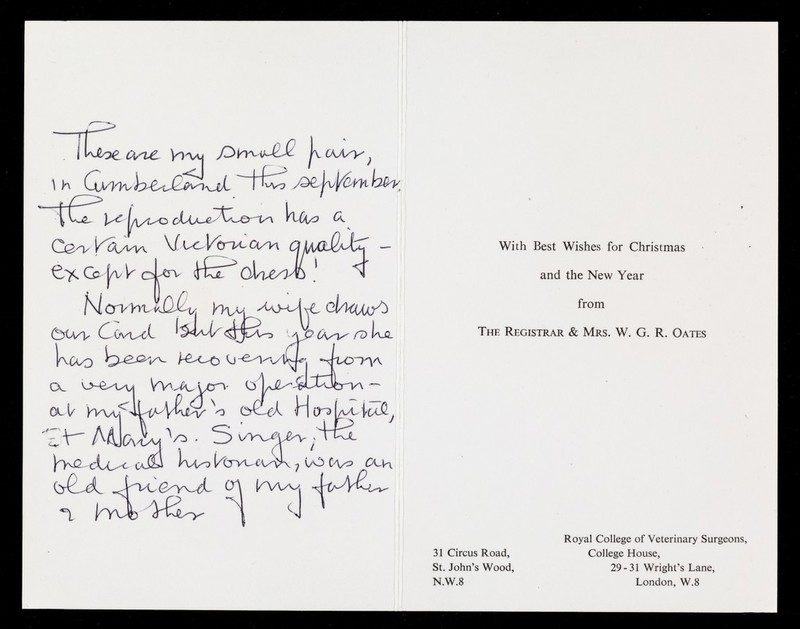 These are my small pair,
in Cumberland this september.
The reproduction has a
certain Victorian quality –
except for the dress!
Normally my wife draws
our Card but this year she
has been recovering from
a very major operation –
at my father's old Hospital,
St Mary's. Singer, the
medical historian, was an
old friend of my father
& mother
With Best Wishes for Christmas
and the New Year
from
The Registrar & Mrs. W. G. R. Oates
31 Circus Road,
St. John's Wood,
N.W.8
Royal College of Veterinary Surgeons,
College House,
29-31 Wright's Lane,
London, W.8